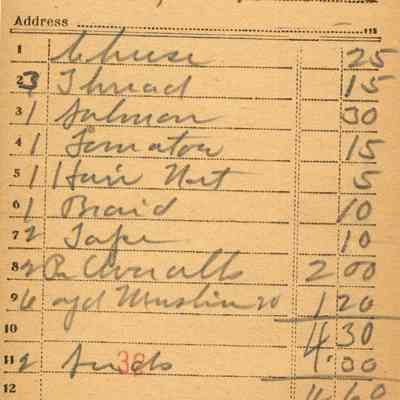 Address
1 Cheese 25
2 3 Thread 15
3 1 Salmon 30
4 1 Tomatoe 15
5 1 Hair Net 5
6 1 Braid 10
7 2 Tape 10
8 2 Pr Overalls 2 00
9 6 yd Muslin 20 1 20
10 4 30
11 2
12 4 60